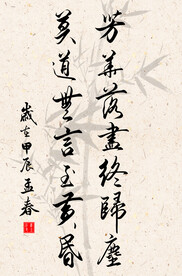 芳华落盡終歸塵
莫道無言至黄昏
歲在甲辰孟春